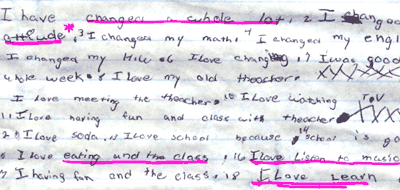 I have changed a whole lot, 2 I chang
attitude* 3 I changed my math. 4 I changed my engl
I changed my 6 I love changing 7 I was good
whole week. 8 I love my old theacher.
I love meeting the theacher. 10 I Love watching T.V
11 I love having fun and class with theacher
I Love soda. I Love school because 14 school is go
I love eating and the class. 16 I Love Listen to music
7 I having fun and the class. 18 I Love Learn